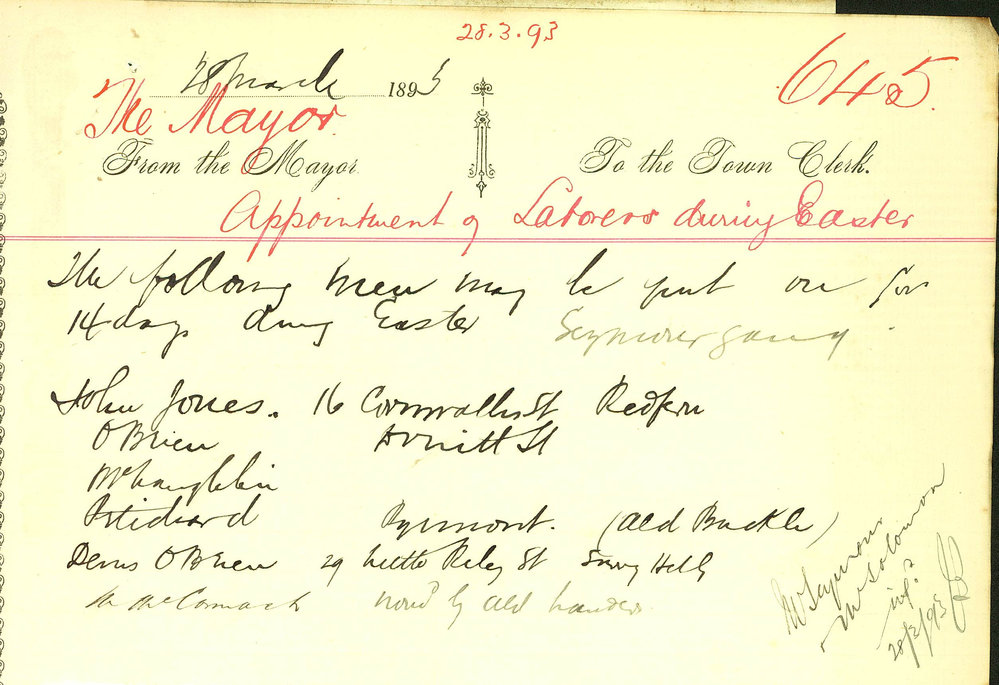 28.3.93
28 March 1893
645
The Mayor.
From the Mayor. To the Town Clerk.
Appointment of Laborers during Easter
The following men may be put on for
14 days during Easter Seymour gang
John Jones. 16 Cornwallis St Redfern
O'Brien St
McLaughlin
Pritchard Pyrmont. (Ald Buckle)
Denis O'Brien 29 Little Riley St Surry Hills
McCormack by Ald Landers
Mr Seymour
Mr Solomon
28/3/93